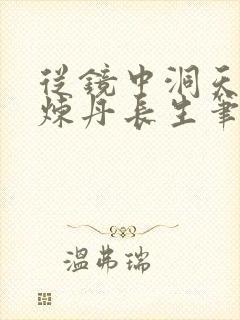 從鏡中洞天
煉丹長生筆
溫弗瑞